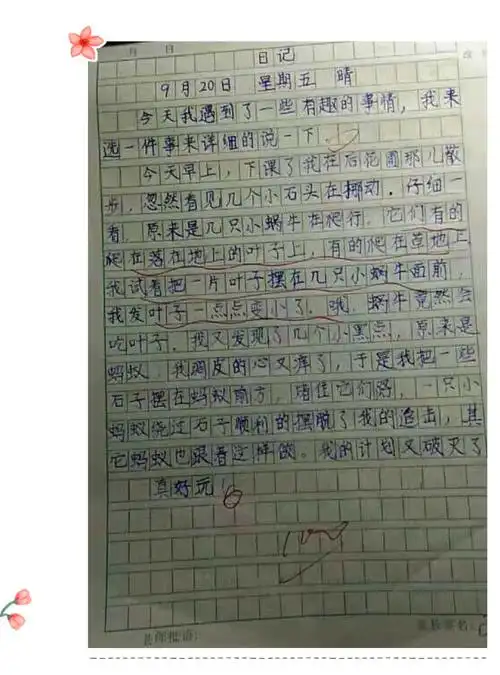 月 日
日记
9月20日 星期五 晴
今天我遇到了一些有趣的事情,我来
选一件事来详细的说一下。
今天早上,下课了我在后花园那儿散
步,忽然看见几个小石头在挪动。仔细一
看,原来是几只小蜗牛在爬行。它们有的
爬在落在地上的叶子上,有的爬在草地上
我试着把一片叶子摆在几只小蜗牛面前,
我发叶子一点点变小了。哦,蜗牛竟然会
吃叶子。我又发现了几个小黑点,原来是
蚂蚁。我调皮的心又痒了,于是我把一些
石子摆在蚂蚁前方,堵住它们路,一只小
蚂蚁绕过石子顺利的摆脱了我的追击,其
它蚂蚁也跟着这样做。我的计划又破灭了
真好玩!